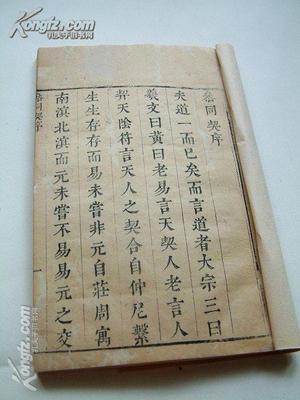 Kongfz.com
孔夫子旧书网
叅同契序
夫道一而已矣而言道者大宗三曰
羲文曰黃曰老易言天契人老言人
契天陰符言天人之契合自仲尼繫
生生存存而易未嘗非元自莊周寓
南溟北溟而元未嘗不易易元之交
叅同契序
一
Kongfz.com